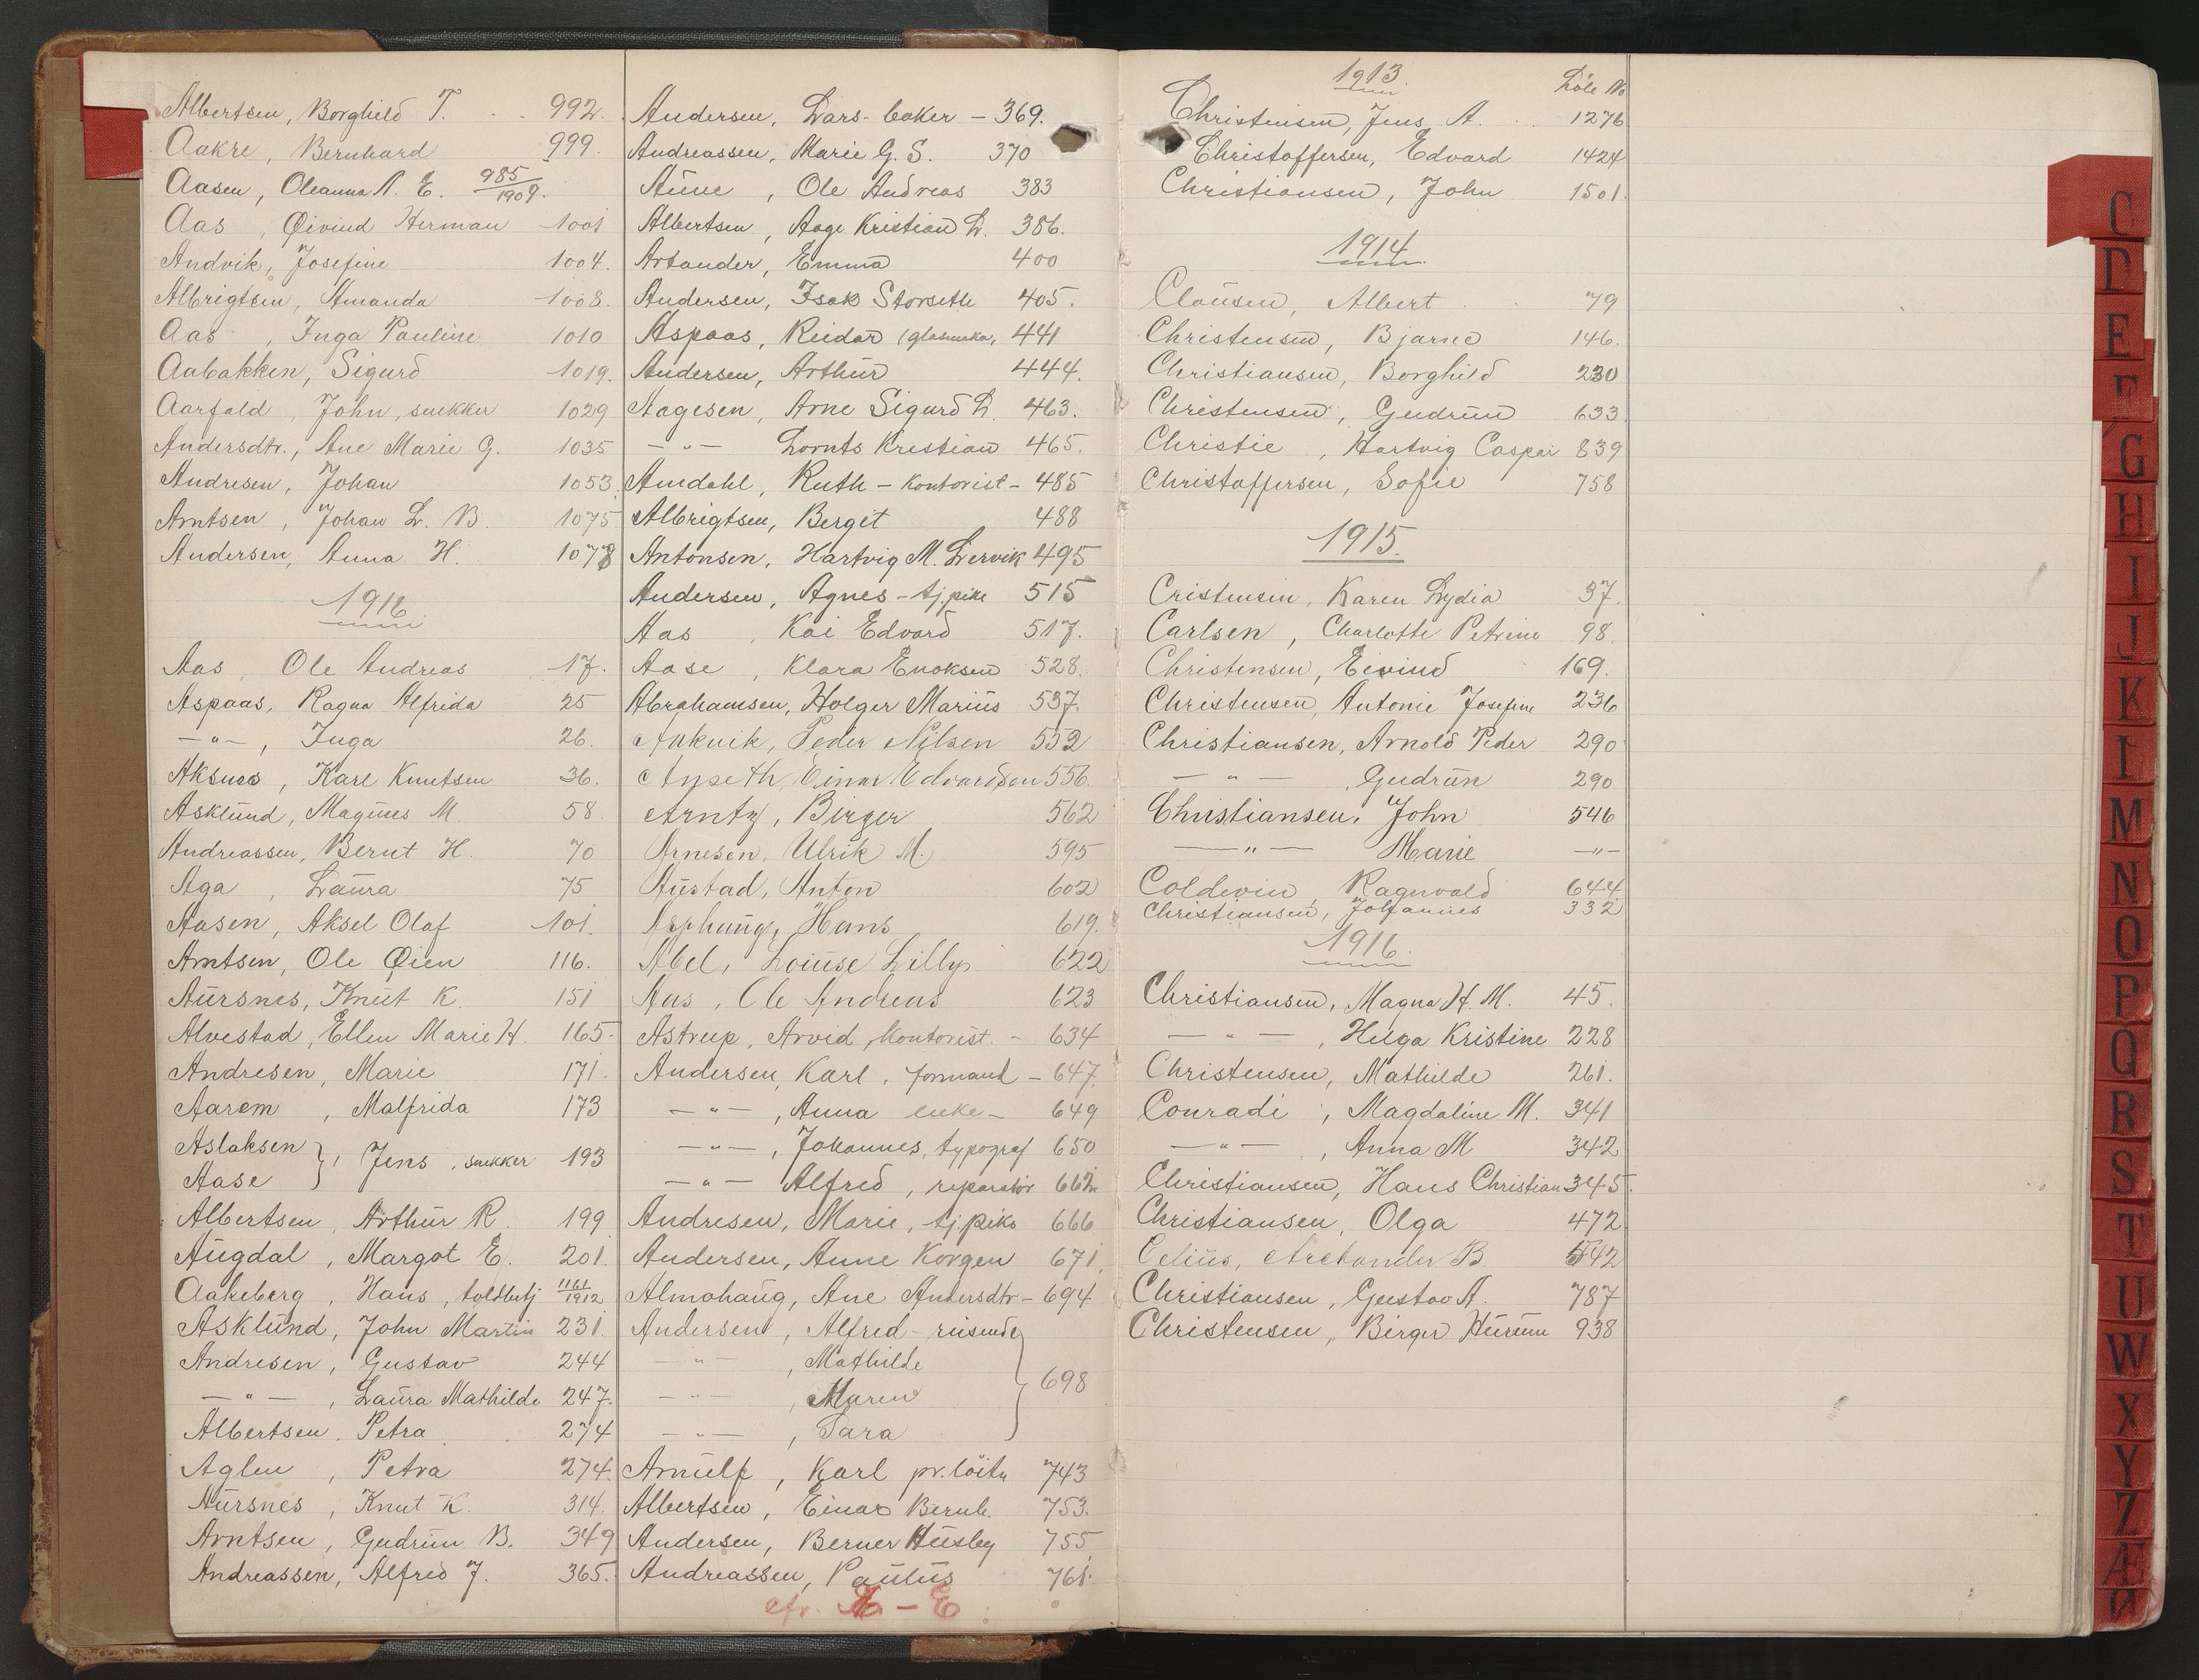 Albertsen, Borghild T. 992.
Aakre, Bernhard 999.
Aasen, Oleanna A. E. 985/1909.
Aas, Øivind Herman 1001
Andvik, Josefine 1004.
Albrigtsen, Amanda 1008.
Aas, Inga Pauline 1010
Aabakken, Sigurd 1019.
Aarfald, John, snekker 1029
Andersdtr., Ane Marie G. 1035
Andresen, Johan 1053
Arntsen, Johan L. B. 1075
Andersen, Anna H. 1078
1916.
Aas, Ole Andreas 17.
Aspaas, Ragna Alfrida 25
—„—, Inga 26.
Aksnes, Karl Knutsen 36.
Asklund, Magnus M. 58
Andreassen, Bernt H. 70
Aga, Laura 75
Aasen, Aksel Olaf 101.
Arntsen, Ole Øien 116.
Aursnes, Knut K. 151
Alvestad, Ellen Marie H. 165
Andresen, Marie 171
Aarem, Malfrida 173
Aslaksen
Aase }, Jens, snekker 193
Albertsen, Arthur R. 199
Augdal, Margot E. 201.
Aakeberg, Hans, toldbetj 1161/1912
Asklund, John Martin 231.
Andresen, Gustav 244
—„—, Laura Mathilde 247.
Albertsen, Petra 274
Aglen, Petra 274.
Aursnes, Knut K. 314.
Arntsen, Gudrun B. 349
Andreassen, Alfred J. 365.
Andersen, Lars - baker - 369.
Andreassen, Marie G. S. 370
Aune, Ole Andreas 383
Albertsen, Aage Kristian L. 386.
Artander, Emma 400
Andersen, Isak Storseth 405.
Aspaas, Reidar 441
Andersen, Arthur 444.
Aagesen, Arne Sigurd L. 463.
—„— Lornts Kristian 465.
Amdahl, Ruth - kontorist - 485
Albrigtsen, Berget 488
Antonsen, Hartvig M. Lervik 495
Andersen, Agnes - tj.pike 515
Aas, Kai Edvard 517.
Aase, Klara Enoksen 528.
Abrahamsen, Holger Marius 537.
Aakvik, Peder Nilsen 552
Aspeth, Einar Edvardsen 556
Arntz, Birger 562
Arnesen, Ulrik M. 595
Austad, Anton 602
Asphaug, Hans 619.
Abel, Louise Lilly 622
Aas, Ole Andreas 623
Astrup, Arvid, kontorist. - 634
Andersen, Karl, formand - 647.
—„—, Anna enke - 649
—„—, Johannes, typograf 650
—„— Alfred, reparatør 662
Andresen, Marie, tj.pike 666
Andersen, Anne Korgen 671.
Almahaug, Ane Andersdtr - 694
Andersen, Alfred - reisende
—„—, Mathilde
—„—, Maren } 698
—„—, Sara
Arnulf, Karl pr. löitn 743
Albertsen, Einar Bernh. 753.
Andersen, Berner Husby 755
Andreassen, Paulus 761.
cfr. - E
1913. Löbe No
Christensen, Jens A. 1276
Christoffersen, Edvard 1424
Christiansen, John 1501.
1914.
Clausen, Albert 79
Christensen, Bjarne 146.
Christiansen, Borghild 230
Christensen, Gudrun 633
Christie, Hartvig Caspar 839
Christoffersen, Sofie 758
1915.
Cristensen, Karen Lydia 37.
Carlsen, Charlotte Petrine 98.
Christensen, Eivind 169.
Christensen, Antonie Josefine 236
Christiansen, Arnold Peder 290
—„—, Gudrun 290
Christiansen, John 546
—„— Marie —„—
Coldevin, Ragnvald 644
Christiansen, Johannes 332
1916.
Christiansen, Magna H. M. 45.
—„—, Helga Kristine 228
Christensen, Mathilde 261.
Conradi, Magdaline M. 341
—„—, Anna M 342
Christiansen, Hans Christian 345.
Christiansen, Olga 472
Celius, B. 542
Christiansen, Gustav A. 787
Christensen, Birger Hurum 938
C
D
E
F
G
H
I
J
K
L
M
N
O
P
Q
R
S
T
U
W
X
Y
Z
Æ
Ø